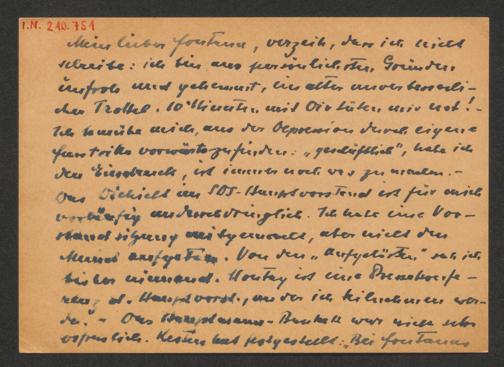 I.N. 210.751
Mein lieber Fontana, verzeih, dass ich nicht
schreibe: ich bin aus persönlichsten Gründen
unfroh und gehemmt, ein alter unverbesserli-
cher Trottel. 10 Minuten mit Dir täten mir not! -
Ich bemühe mich, aus der Depression durch eigene
vorwärtszufinden: "geschäftlich", habe ich
den Eindruck, ist immer noch was zu machen. -
Das Dickicht im SDS-Hauptvorstand ist für mich
vorläufig undurchdringlich. Ich habe eine Vor-
standssitzung mitgemacht, aber nicht den
Mund aufgetan. Von den "Aufgelösten" sah ich
bisher niemand. Montag ist eine Pressekonfe-
renz d. Hauptvorst., an der ich teilnehmen wer-
de. - Das Hauptmann-Bankett war nicht sehr
. Kesten hat festgestellt: "Bei Fontanas